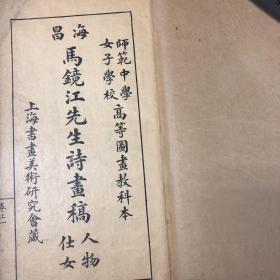 師範中學
女子學校
高等圖畫教科本
海昌
馬鏡江先生詩畫稿
人物
仕女
上海書畫美術研究會藏